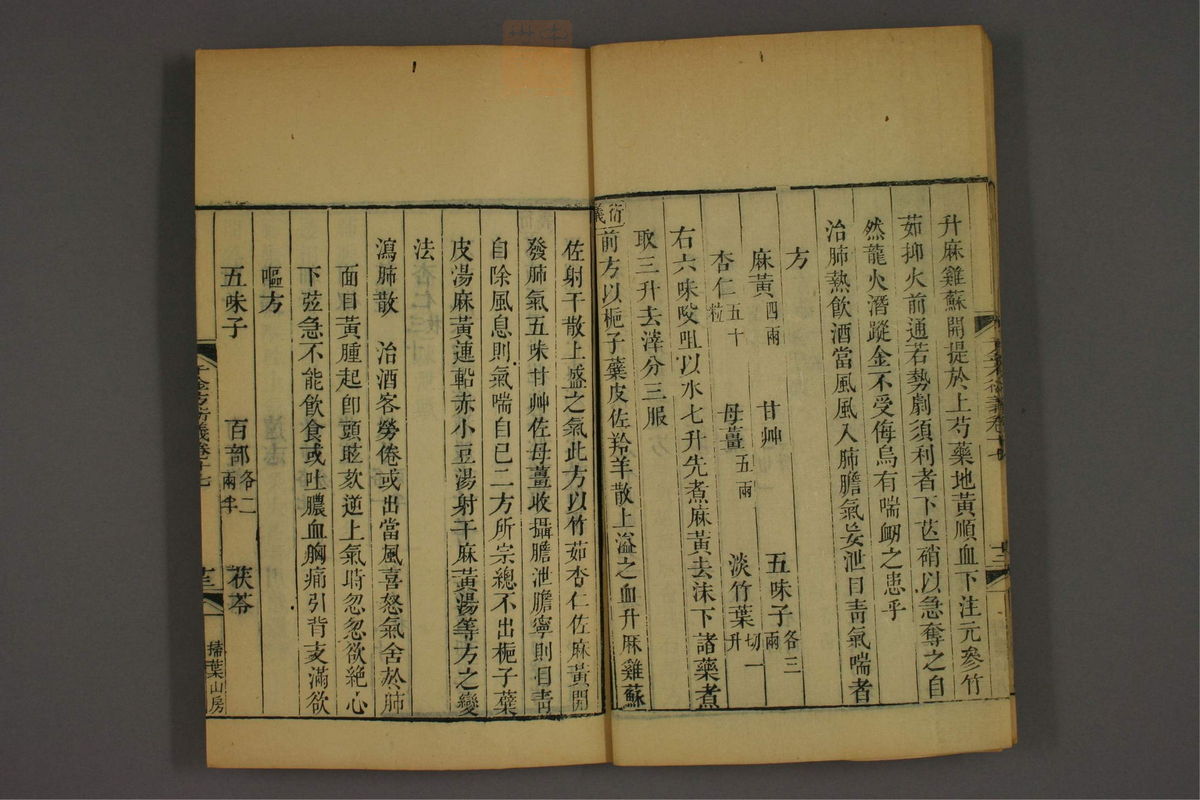 升麻雞蘇開提於上芍藥地黃順血下注元參竹
茹抑火前通若勢劇須利者下芒硝以急奪之自
然龍火潛蹤金不受侮烏有喘衂之患乎
治肺熱飲酒當風風入肺膽氣妄泄目靑氣喘者
方
麻黃四兩 甘艸 五味子各三兩
杏仁五十粒 母薑五兩 淡竹葉切一升
右六味㕮咀以水七升先煮麻黃去沫下諸藥煮
取三升去滓分三服
衍義前方以梔子蘗皮佐羚羊散上溢之血升麻雞蘇
佐射干散上盛之氣此方以竹茹杏仁佐麻黃開
發肺氣五味甘艸佐母薑收攝膽泄膽寧則目靑
自除風息則氣喘自已二方所宗總不出梔子蘗
皮湯麻黃連軺赤小豆湯射干麻黃湯等方之變
法
瀉肺散 治酒客勞倦或出當風喜怒氣舍於肺
面目黃腫起卽頭眩欬逆上氣時忽忽欲絶心
下弦急不能飲食或吐膿血胸痛引背支滿欲
嘔方
五味子 百部各二兩半 茯苓
千金方衍義卷十七
十三
掃葉山房